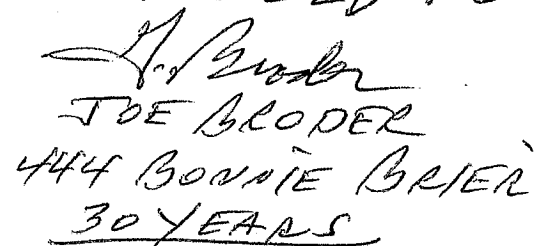 J. Broder
JOE BRODER
444 BONNIE BRIER
30 YEARS